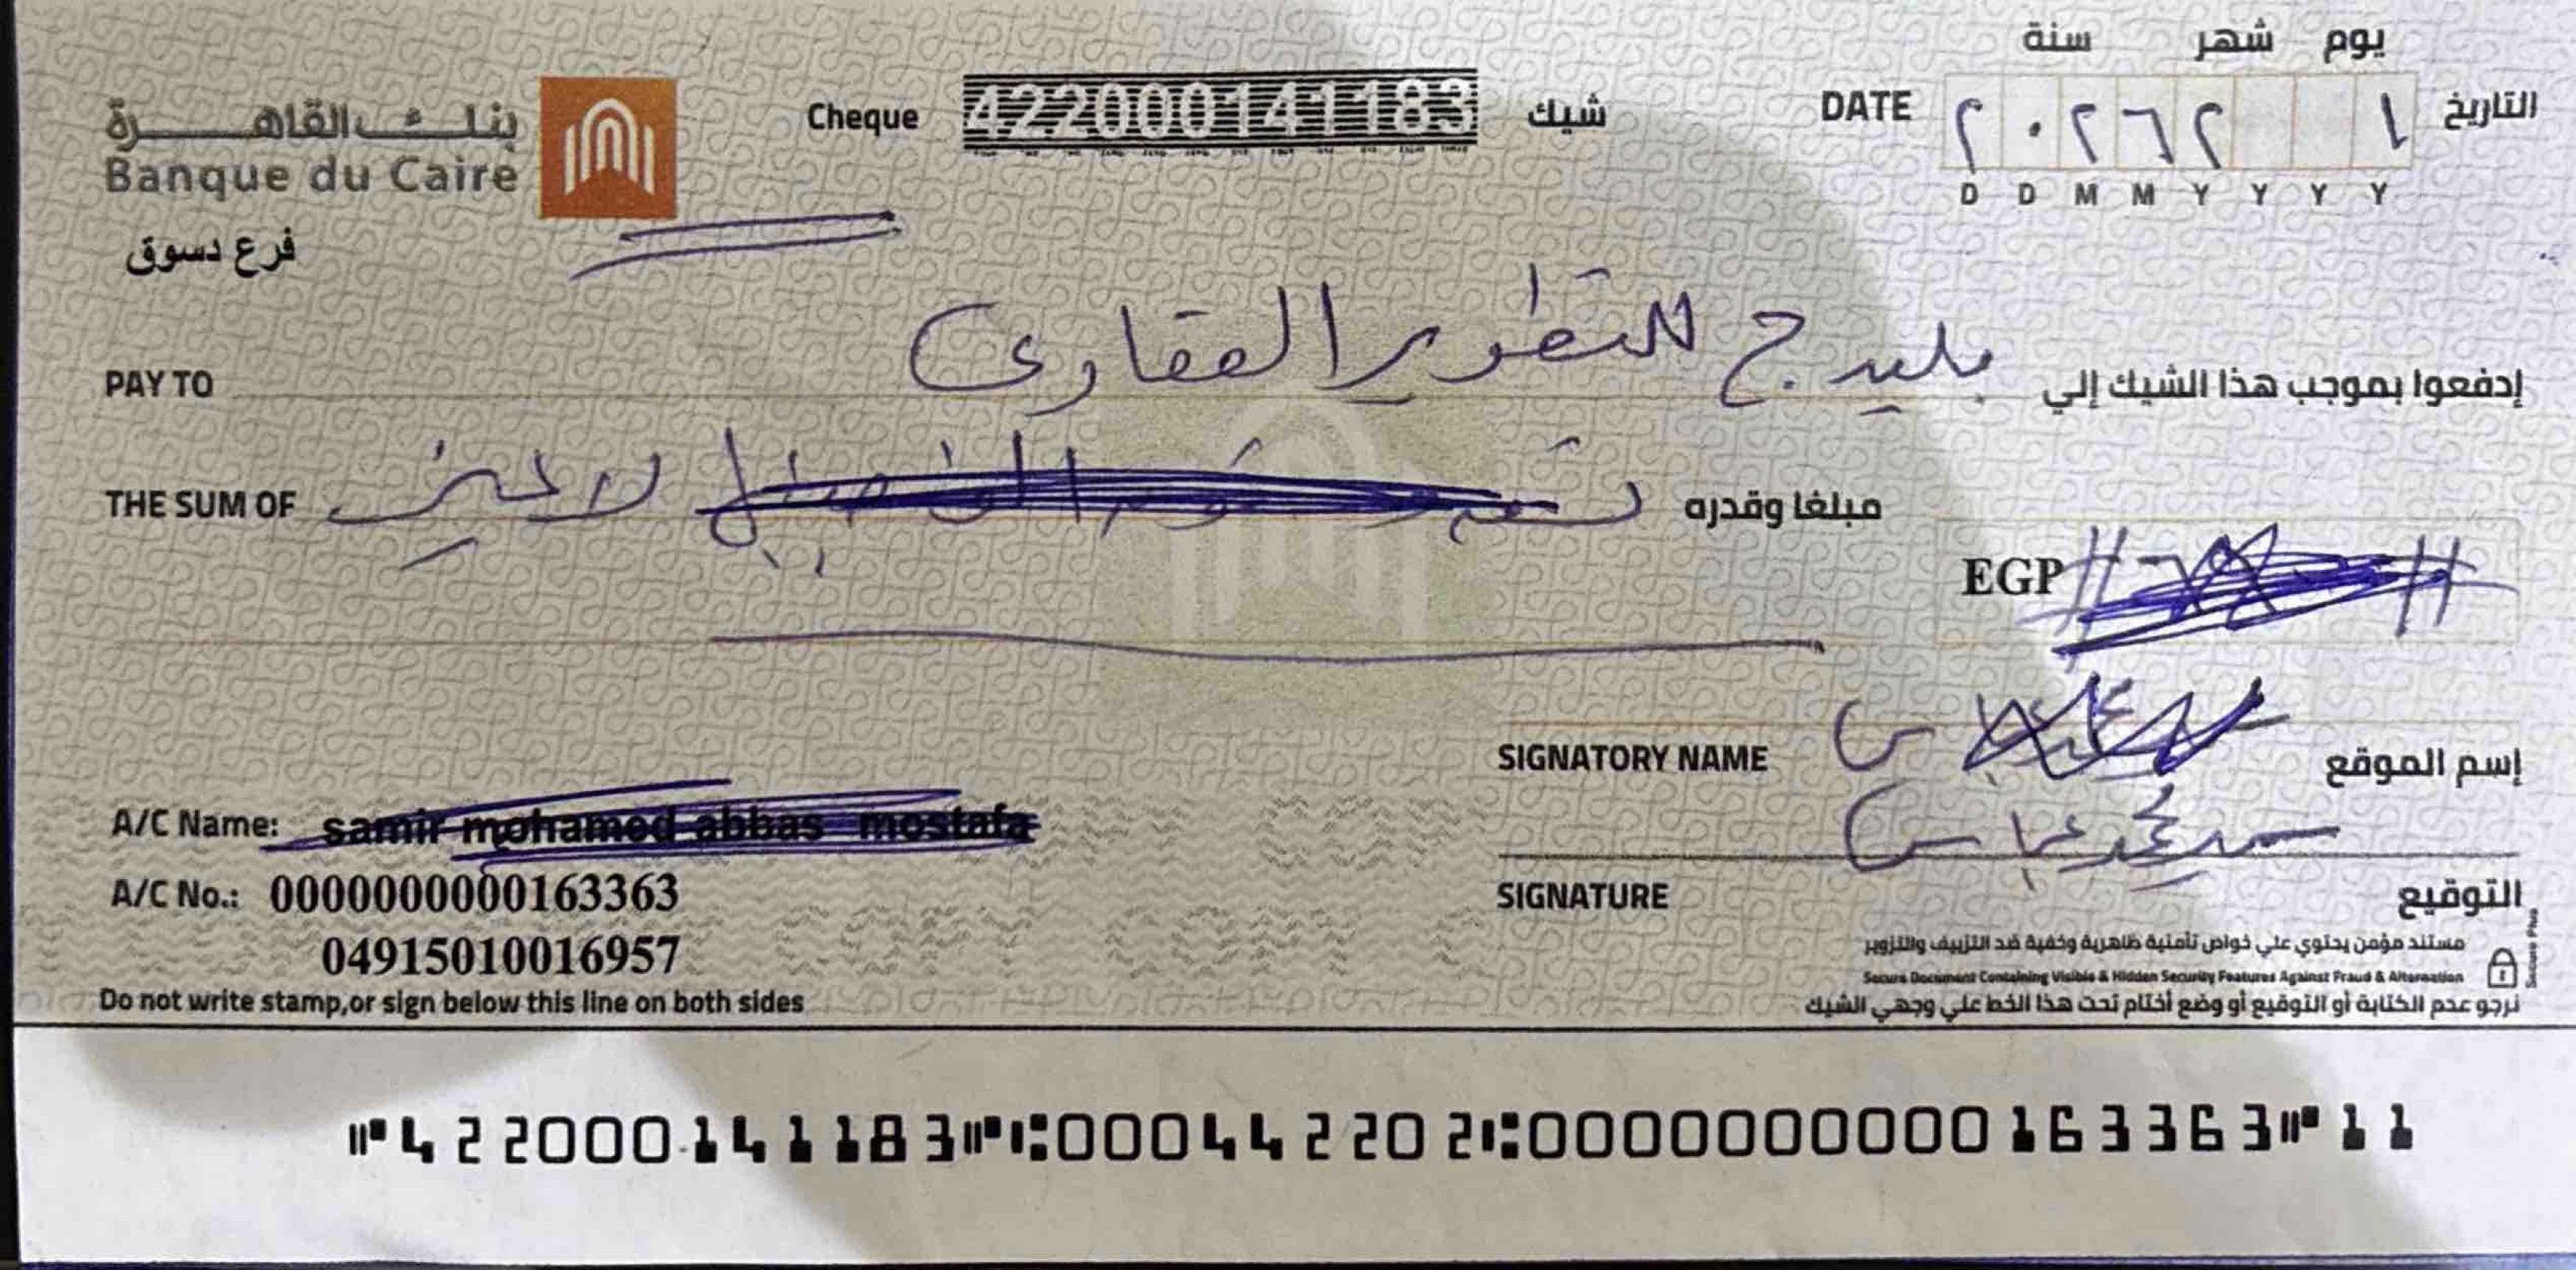 يوم شهر سنة
بنك القاهرة
Banque du Caire
Cheque 422000141183 شيك
DATE ٢٠٢٦٢ ١ التاريخ
D D M M Y Y Y Y
فرع دسوق
PAY TO بليدج للتطوير العقارى إدفعوا بموجب هذا الشيك إلي
THE SUM OF لا غير مبلغا وقدره
EGP
SIGNATORY NAME إسم الموقع
A/C Name: samir mohamed abbas mostafa
سمير محمد عباس
A/C No.: 0000000000163363
SIGNATURE التوقيع
04915010016957
مستند مؤمن يحتوي علي خواص تأمنية ظاهرية وخفية ضد التزييف والتزوير
Secure Document Containing Visible & Hidden Security Features Against Fraud & Alteration
Secure Plus
Do not write stamp,or sign below this line on both sides
نرجو عدم الكتابة أو التوقيع أو وضع أختام تحت هذا الخط علي وجهي الشيك
⑈422000141183⑈⑆000442202⑆0000000000163363⑈11